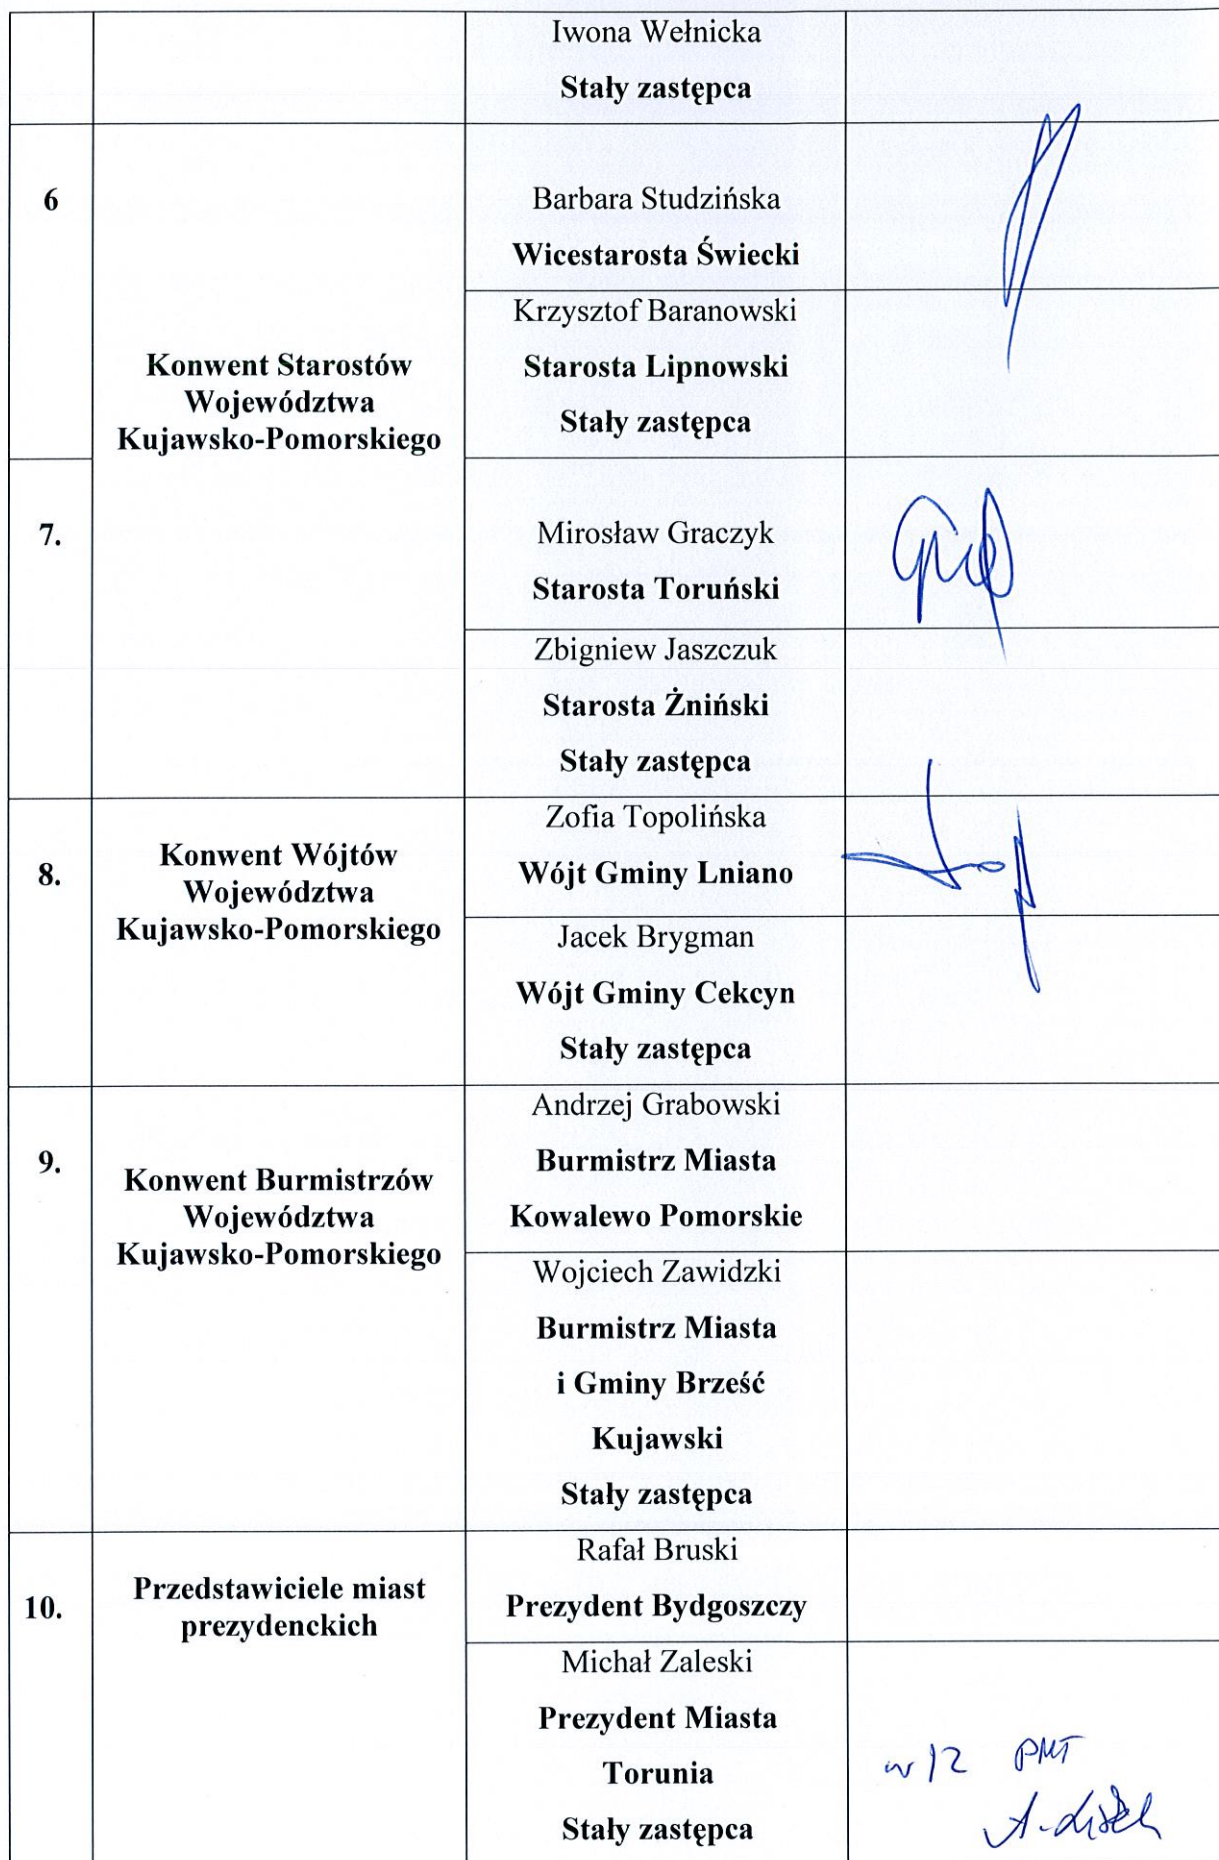 Iwona Wełnicka
Stały zastępca
6
Konwent Starostów
Województwa
Kujawsko-Pomorskiego
Barbara Studzińska
Wicestarosta Świecki
Krzysztof Baranowski
Starosta Lipnowski
Stały zastępca
7.
Mirosław Graczyk
Starosta Toruński
Zbigniew Jaszczuk
Starosta Żniński
Stały zastępca
8.
Konwent Wójtów
Województwa
Kujawsko-Pomorskiego
Zofia Topolińska
Wójt Gminy Lniano
Jacek Brygman
Wójt Gminy Cekcyn
Stały zastępca
9.
Konwent Burmistrzów
Województwa
Kujawsko-Pomorskiego
Andrzej Grabowski
Burmistrz Miasta
Kowalewo Pomorskie
Wojciech Zawidzki
Burmistrz Miasta
i Gminy Brześć
Kujawski
Stały zastępca
10.
Przedstawiciele miast
prezydenckich
Rafał Bruski
Prezydent Bydgoszczy
Michał Zaleski
Prezydent Miasta
Torunia
Stały zastępca
PMT